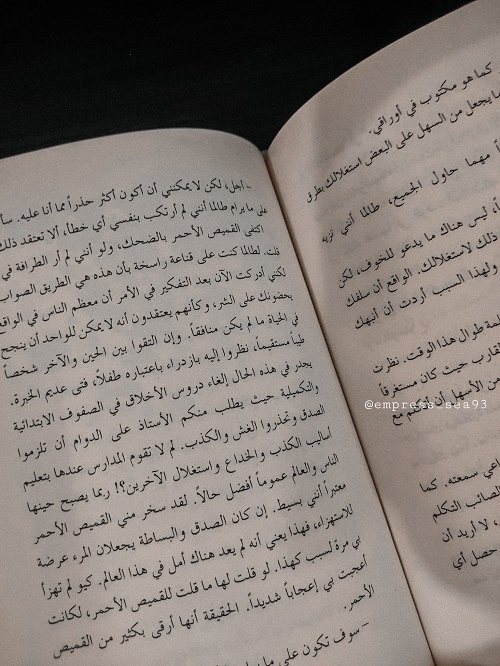 كما هو مكتوب في أوراقي.
ما يجعل من السهل على البعض استغلالك بطرق
مهما حاول الجميع، طالما أنني نزيه
ليس هناك ما يدعو للخوف، لكن
ذلك لاستغلالك. الواقع أن سلفك
ولهذا السبب أردت أن أنبهك
طوال هذا الوقت. نظرت
القارب حيث كان مستغرقاً
من الأسهل أن أتكلم مع
سمعته. كما
الصائب التكلم
، لا أريد أن
حصل أي
– أجل، لكن لا يمكنني أن أكون أكثر حذراً مما أنا عليه.
على ما يرام طالما أنني لم أرتكب بنفسي أي خطأ، ألا تعتقد ذلك
اكتفى القميص الأحمر بالضحك، ولو أنني لم أر الطرافة في
قلت. لطالما كنت على قناعة راسخة بأن هذه هي الطريق الصواب
لكني أدركت الآن بعد التفكير في الأمر أن معظم الناس في الواقع
يحضونك على الشر، وكأنهم يعتقدون أنه لا يمكن للواحد أن ينجح
في الحياة ما لم يكن منافقاً. وإن التقوا بين الحين والآخر شخصاً
طيباً مستقيماً، نظروا إليه بازدراء باعتباره طفلاً، فتى عديم الخبرة.
يجدر في هذه الحال إلغاء دروس الأخلاق في الصفوف الابتدائية
والتكميلية حيث يطلب منكم الأستاذ على الدوام أن تلزموا
الصدق وتحذروا الغش والكذب. لم لا تقوم المدارس عندها بتعليم
أساليب الكذب والخداع واستغلال الآخرين؟! ربما يصبح حينها
الناس والعالم عموماً أفضل حالاً. لقد سخر مني القميص الأحمر
معتبراً أنني بسيط. إن كان الصدق والبساطة يجعلان المرء عرضة
للاستهزاء، فهذا يعني أنه لم يعد هناك أمل في هذا العالم. كيو لم تهزأ
بي مرة لسبب كهذا. لو قلت لها ما قلت للقميص الأحمر، لكانت
أعجبت بي إعجاباً شديداً. الحقيقة أنها أرقى بكثير من القميص
الأحمر.
– سوف تكون على ما
@empress_sea93